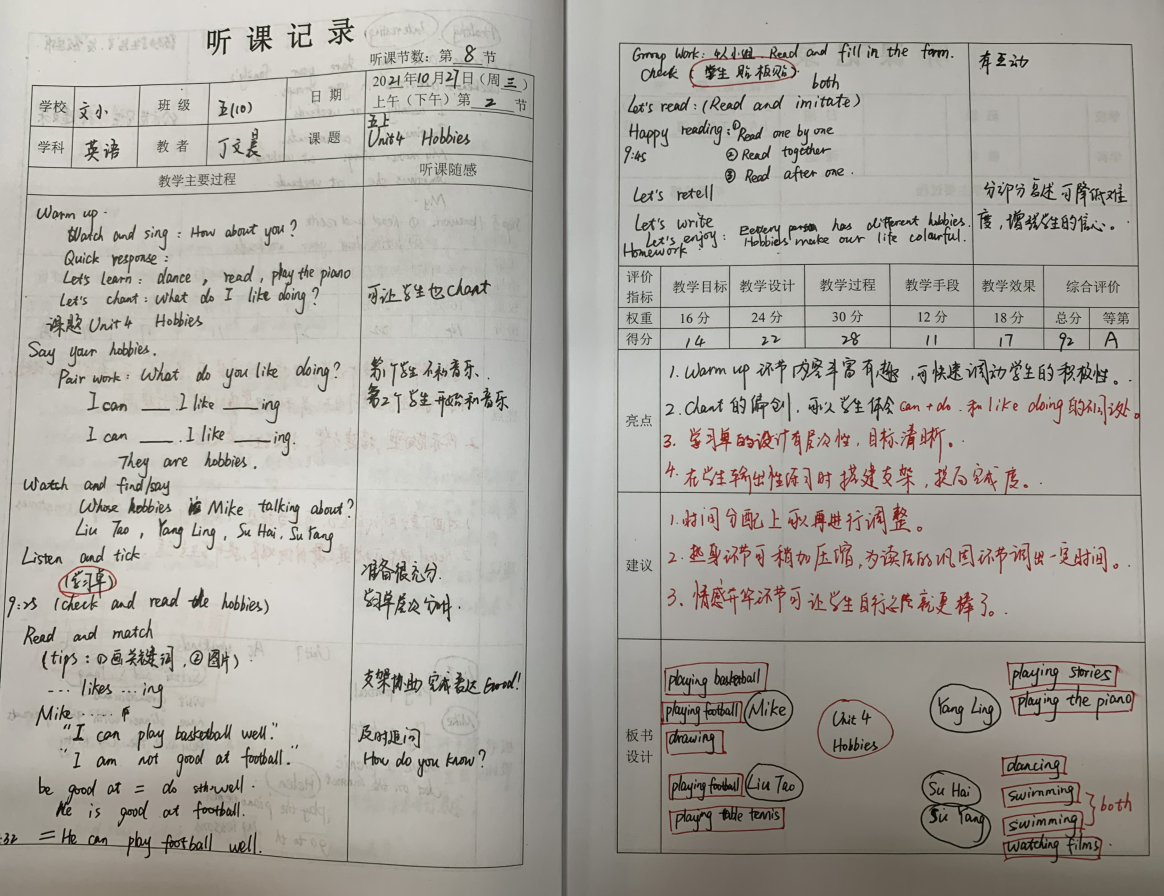 听课记录
听课节数：第 8 节
学校 文小 班级 五(10) 日期 2021年10月27日（周三）
上午（下午）第 2 节
学科 英语 教者 丁文晨 课题 五上
Unit4 Hobbies
教学主要过程 听课随感
Warm up.
Watch and sing : How about you?
Quick response :
Let's learn : dance , read , play the piano
Let's chant : What do I like doing? 可让学生也chant
课题 Unit 4 Hobbies
Say your hobbies.
Pair work : What do you like doing? 第1个学生不和音乐、
I can ___ I like ___ing 第2个学生开始和音乐
I can ___ . I like ___ing.
They are hobbies.
Watch and find/say
Whose hobbies is Mike talking about?
Liu Tao , Yang Ling , Su Hai , Su Yang
Listen and tick
(学习单) 准备很充分.
9:25 (check and read the hobbies) 学习单层次分明.
Read and match
(tips : ①画关键词, ②图片).
... likes ... ing 支架协助 完成表达 Good!
Mike ....
"I can play basketball well." 及时追问
"I am not good at football." How do you know?
be good at = do sth well.
He is good at football.
:32 = He can play football well.
Group Work : 4人小组 Read and fill in the form. 有互动
Check (学生贴板贴).
both
Let's read : (Read and imitate)
Happy reading : ① Read one by one
9:45 ② Read together
③ Read after one.
Let's retell 分部分复述可降低难
Let's write 度，增强学生的信心。
Let's enjoy : Every person has different hobbies.
Hobbies make our life colourful.
Homework
评价指标 教学目标 教学设计 教学过程 教学手段 教学效果 综合评价
权重 16分 24分 30分 12分 18分 总分 等第
得分 14 22 28 11 17 92 A
亮点
1. Warm up 环节内容丰富有趣，可快速调动学生的积极性。
2. Chant的编创，可以学生体会 can + do 和 like doing 的不同之处。
3. 学习单的设计有层次性，目标清晰。
4. 在学生输出性练习时搭建支架，提高完成度。
建议
1. 时间分配上可以再进行调整。
2. 热身环节可稍加压缩，为读后的巩固环节调出一定时间。
3. 情感升华环节可让学生自行总结就更棒了。
板书设计
playing basketball
playing football Mike
drawing
playing football Liu Tao
playing table tennis
Unit 4
Hobbies
Yang Ling
playing stories
playing the piano
Su Hai
Su Yang
dancing
swimming
swimming
both
watching films